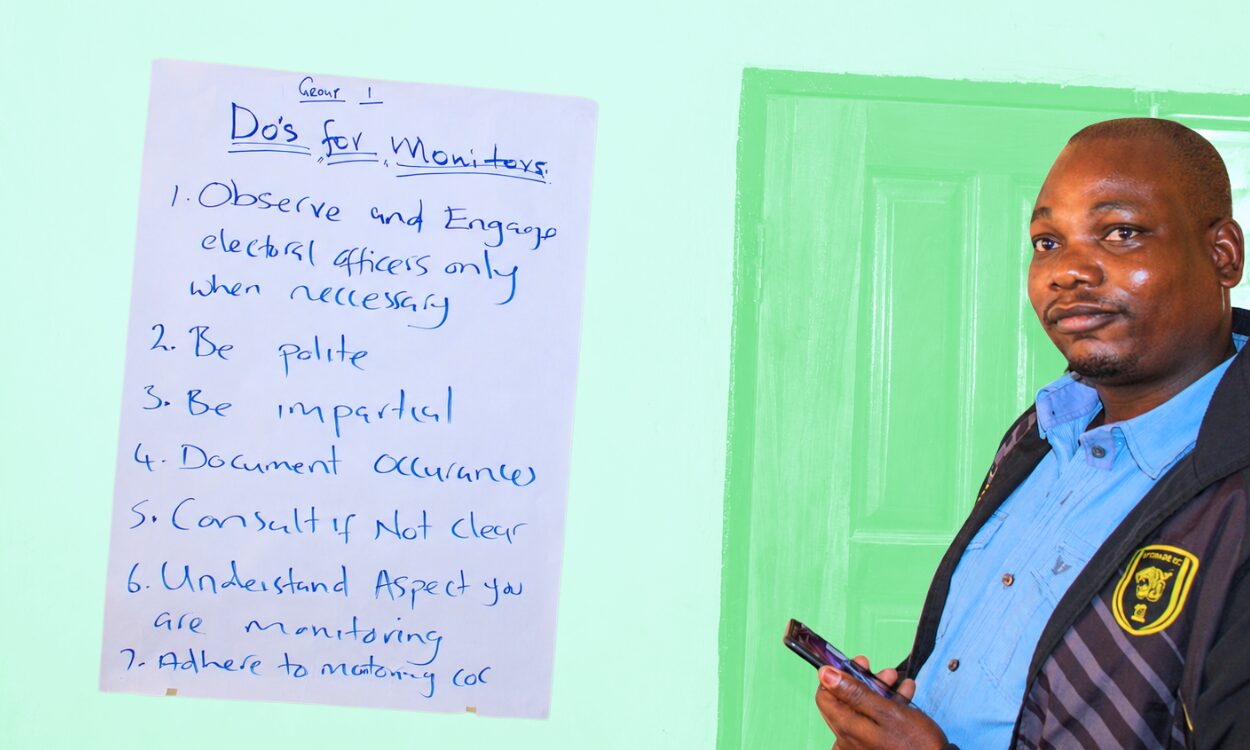 Group 1
Do's for Monitors.
1. Observe and Engage
electoral officers only
when neccessary
2. Be polite
3. Be impartial
4. Document Occurances
5. Consult if Not clear
6. Understand Aspect you
are monitoring
7. Adhere to monitoring COC